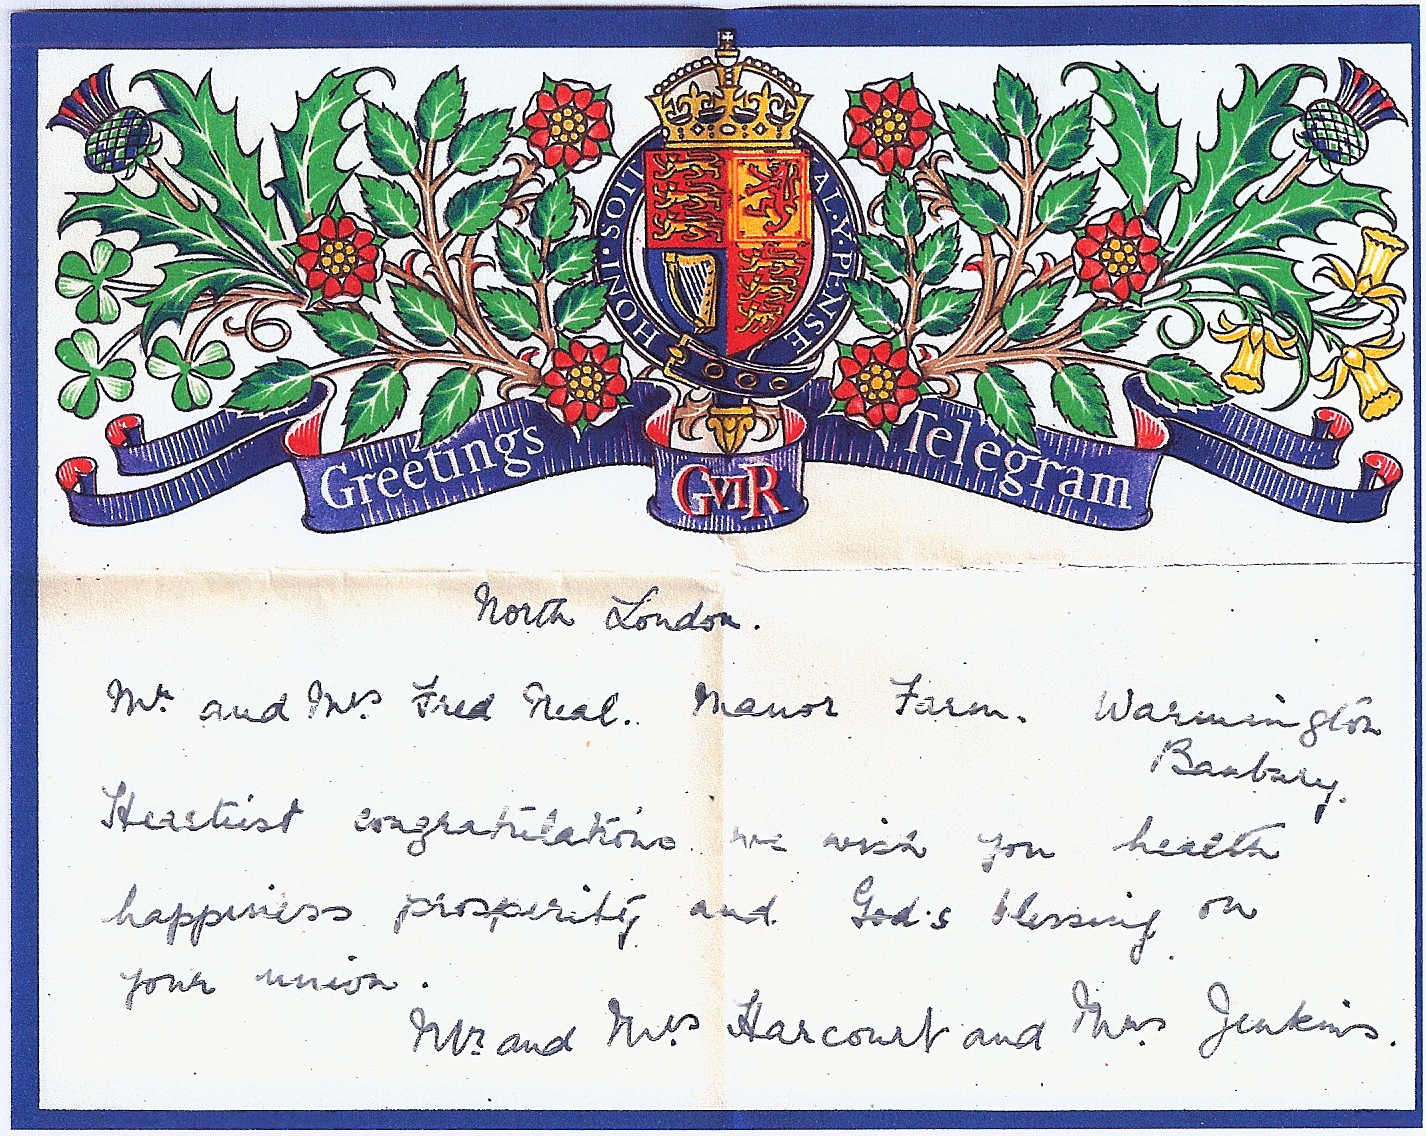 HONI · SOIT AL · Y · PENSE
Greetings Telegram
GVIR
North London.
Mr. and Mrs Fred Neal. Manor Farm. Warmington
Banbury.
Heartiest congratulations we wish you health
happiness prosperity and God's blessing on
your union.
Mr. and Mrs Harcourt and Mrs Jenkins.